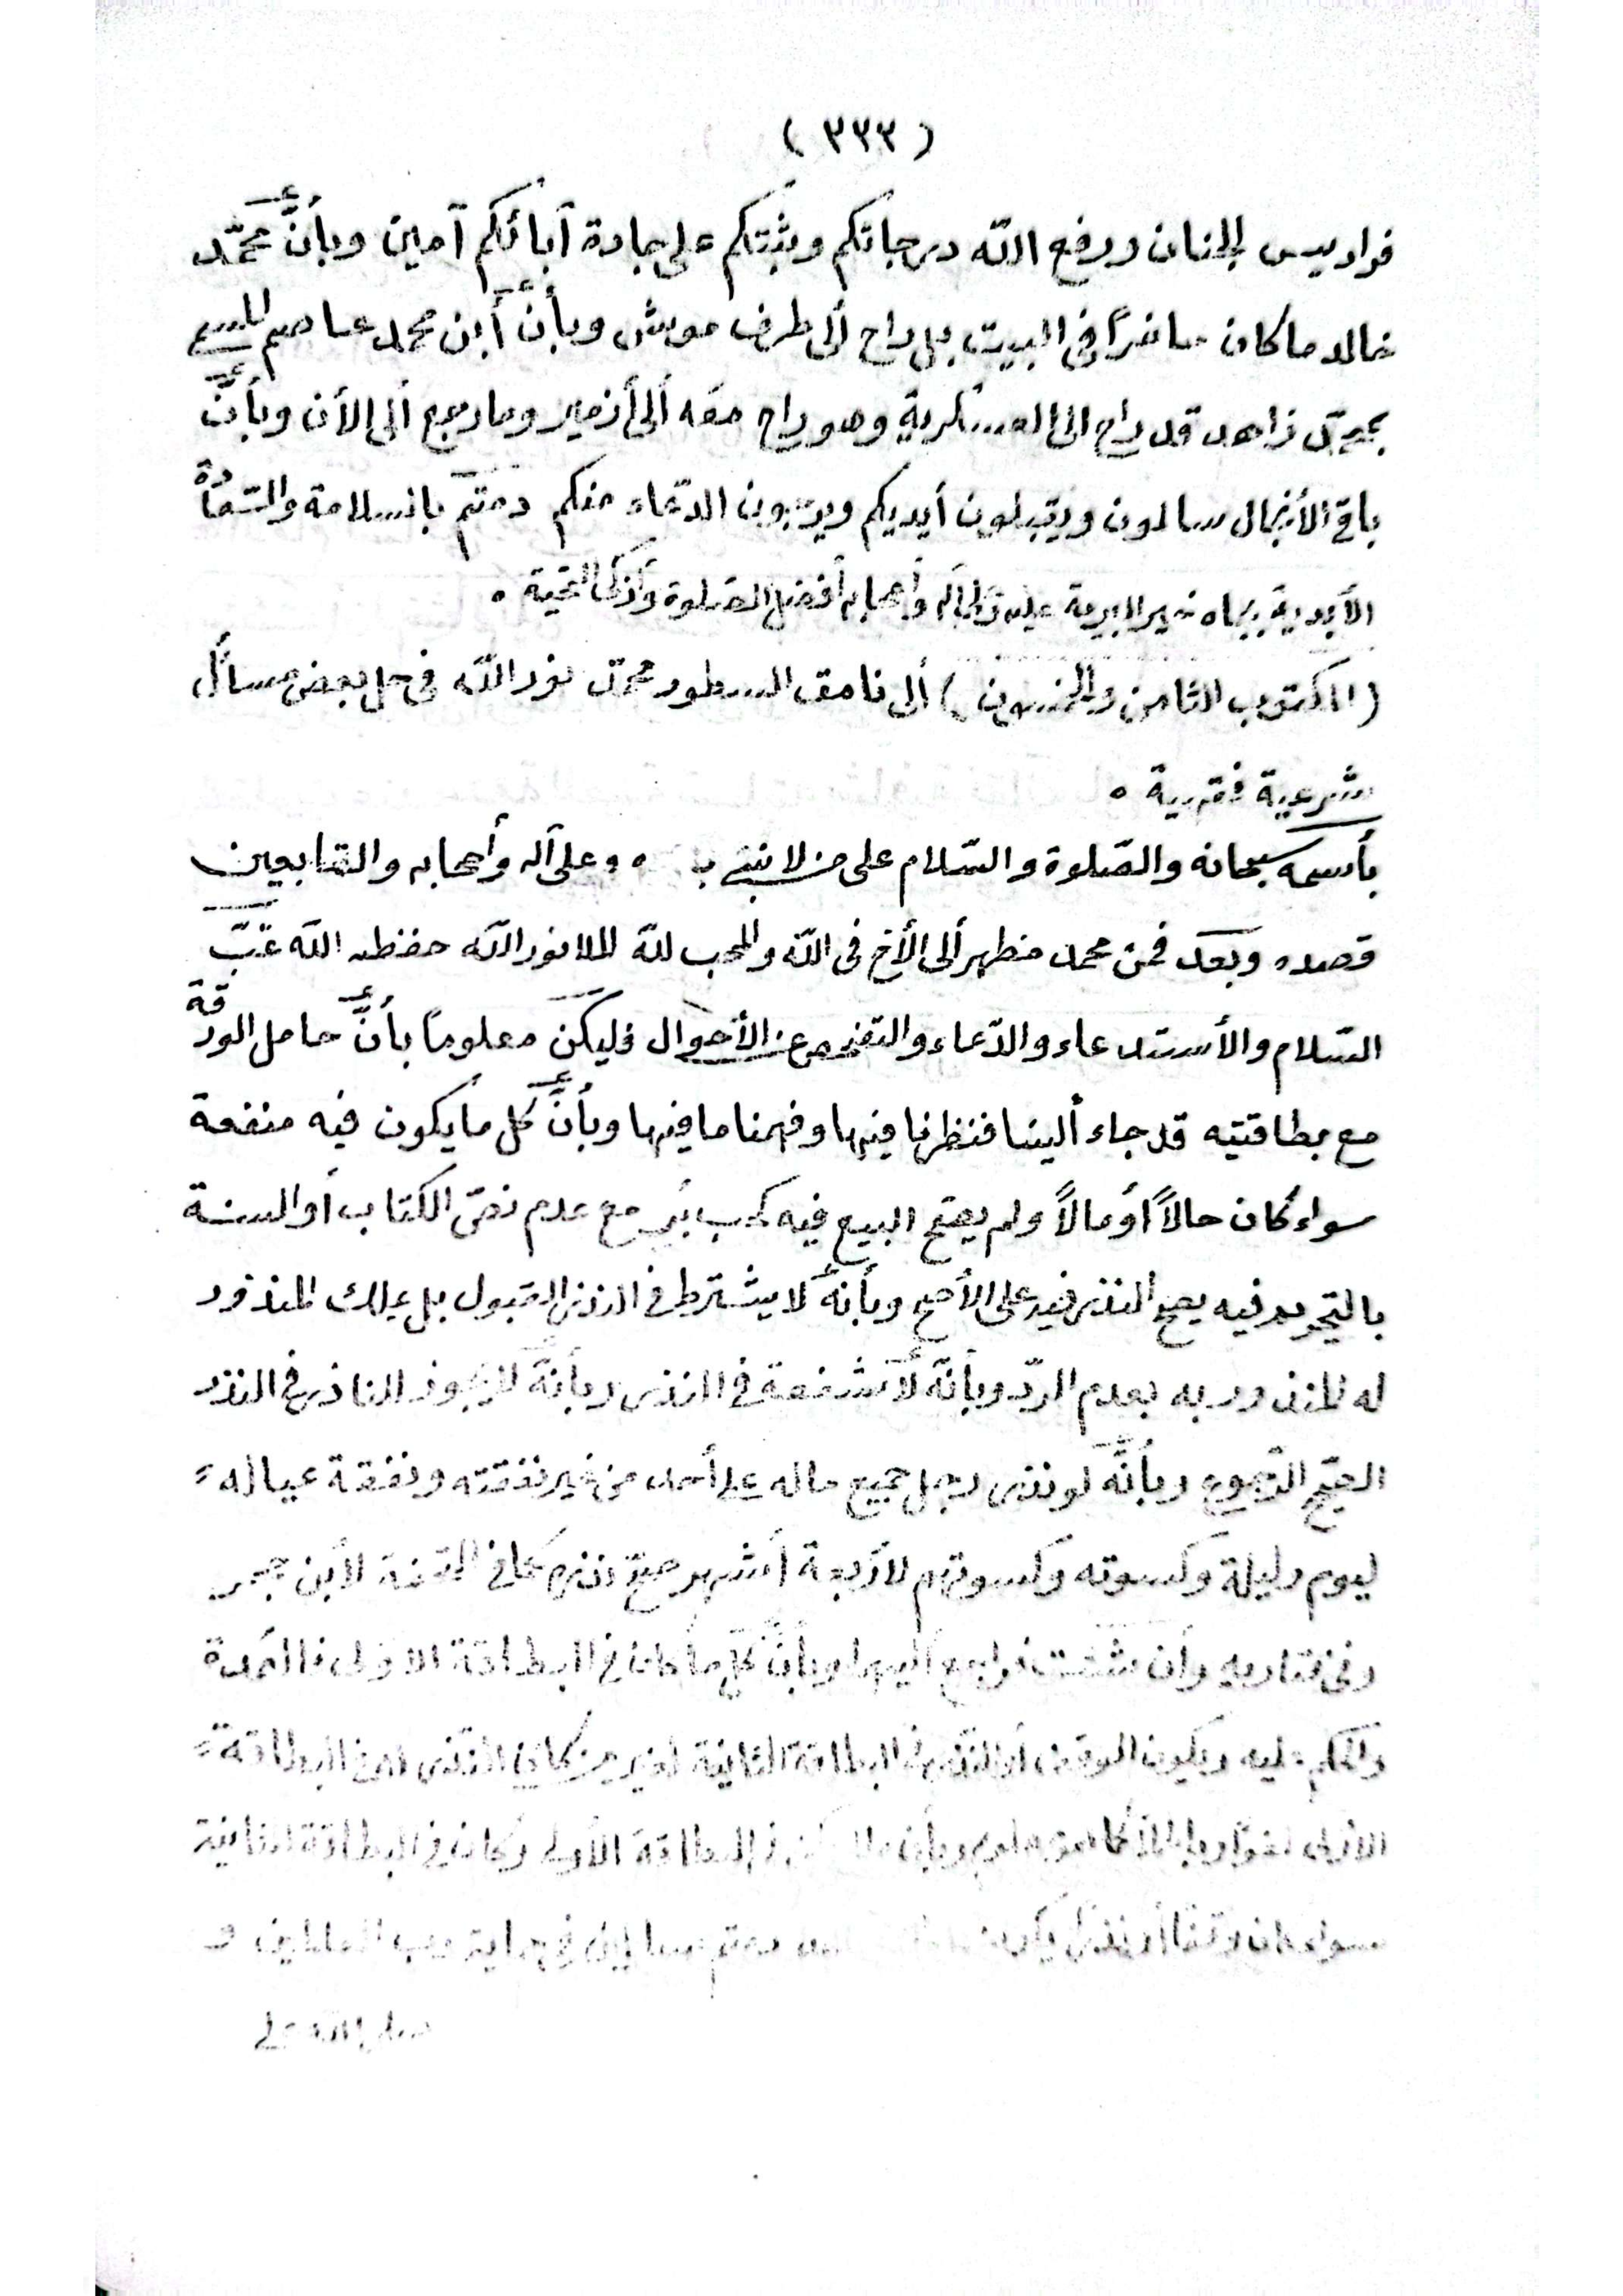 ( ٣٣٣ )
فراديس الجنان ورفع الله درجاتكم وثبتكم على جادة آبائكم آمين وبأنَّ محمّد
خالد ما كان حاضراً فى البيت بل راح ألى طرف موش وبأنَّ أبن محمد عاصم المسمى
بمحمّد زاهد قد راح الى العسكرية وهو راح معه ألى أزمير وما رجع ألى الأن وبأنَّ
باقى الأنجال سالمون ويقبلون أيديكم ويرجون الدّعاء منكم دمتم بالسلامة والسّعادة
الأبدية بجاه خير البرية عليه وعلى آله وأصحابه أفضل الصّلوة وأزكى التحية ٠
( المكتوب الثامن والخمسون ) ألى نامق السطور محمّد نور الله فى حل بعض مسائل
شرعية فقهية ٠
بأسمه سبحانه والصّلوة والسّلام على من لا نبى بعده وعلى آله وأصحابه والتّابعين
قصده وبعد فمن محمد مظهر ألى الأخ فى الله والمحب لله الملا نور الله حفظه الله غبّ
السّلام والأستدعاء والدّعاء والتفحص عن الأحوال فليكن معلوماً بأنَّ حامل الورقة
مع بطاقتيه قد جاء ألينا فنظرنا فيها وفهمنا ما فيها وبأنَّ كل ما يكون فيه منفعة
سواء كان حالاً أو مالاً ولم يصح البيع فيه كحب بُر مع عدم نصّ الكتاب أو السنة
بالتحريم فيه يصح النذر فيه على الأصح وبأنه لا يشترط فى النذر القبول بل يملك المنذور
له المنذور به بعدم الردّ وبأنّه لا شفعة فى النذر وبأنّه لا يجوز للناذر فى النذر
الصحيح الرّجوع وبأنَّه لو نذر رجل جميع ماله على أحد من غير نفقته ونفقة عياله
ليوم وليلة وكسوته وكسوتهم لأربعة أشهر صحّ نذره كما فى التحفة لأبن حجر
وفى فتاويه وأن شئت فراجع أليهما وبأنَّ كلّ ما كان فى البطاقة الاولى فالعمدة
والحكم عليه ويكون الوقف أو النذر فى البطاقة الثانية لغير من كان النذر له فى البطاقة
الأولى لغوًا وباطلاً وبأن فى البطاقة الأولى وكان فى البطاقة الثانية
سواء كان وقفا أو نذرا دمتم سالمين فى حماية رب العالمين